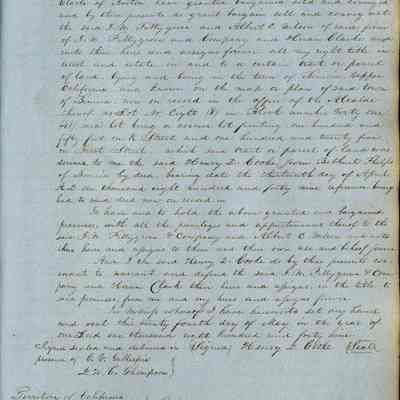 Clarke of Boston have granted bargained sold and conveyed
and by these presents do grant bargain sell and convey unto
the said J. W. Pettygrew and Albert C. of said firm
of J. W. Pettygrew and Company and Hiram Clarke
unto their heirs and assigns forever all my right title in
terest and estate in and to a certain tract or parcel
of land lying and being in the town of Benicia Upper
California and known on the map or plan of said town
of Benicia now on record in the office of the Alcalde
thereof as Lot No Eight (8) in Block number forty one
(41) said lot being a corner lot fronting one hundred and
fifty feet on Street and one hundred and twenty five
on First Street which said tract or parcel of land was
deeded to me the said Henry D. Cooke from Bethuel Phelps
of Benicia by deed bearing date the thirteenth day of April
A.D. one thousand eight hundred and forty nine reference being
had to said deed now on record in
To have and to hold the above granted and bargained
premises, with all the privileges and appurtenances thereof to the
said J. W. Pettygrew & Company and Albert C.
their heirs and assigns to them and their own use and behoof forever
And I the said Henry D. Cooke do by these presents cove
nant to warrant and defend the said J. W. Pettygrew & Com
pany and Hiram Clark their heirs and assigns, in the title to
said premises from me and my heirs and assigns forever
In witness whereof I have hereunto set my hand
and seal this twenty fourth day of May in the year of
our Lord one thousand eight hundred and forty nine
Signed sealed and delivered in (Signed) Henry D. Cooke (Seal)
presence of C. V. Gillespie
J. W. C. Thompson
Territory of California